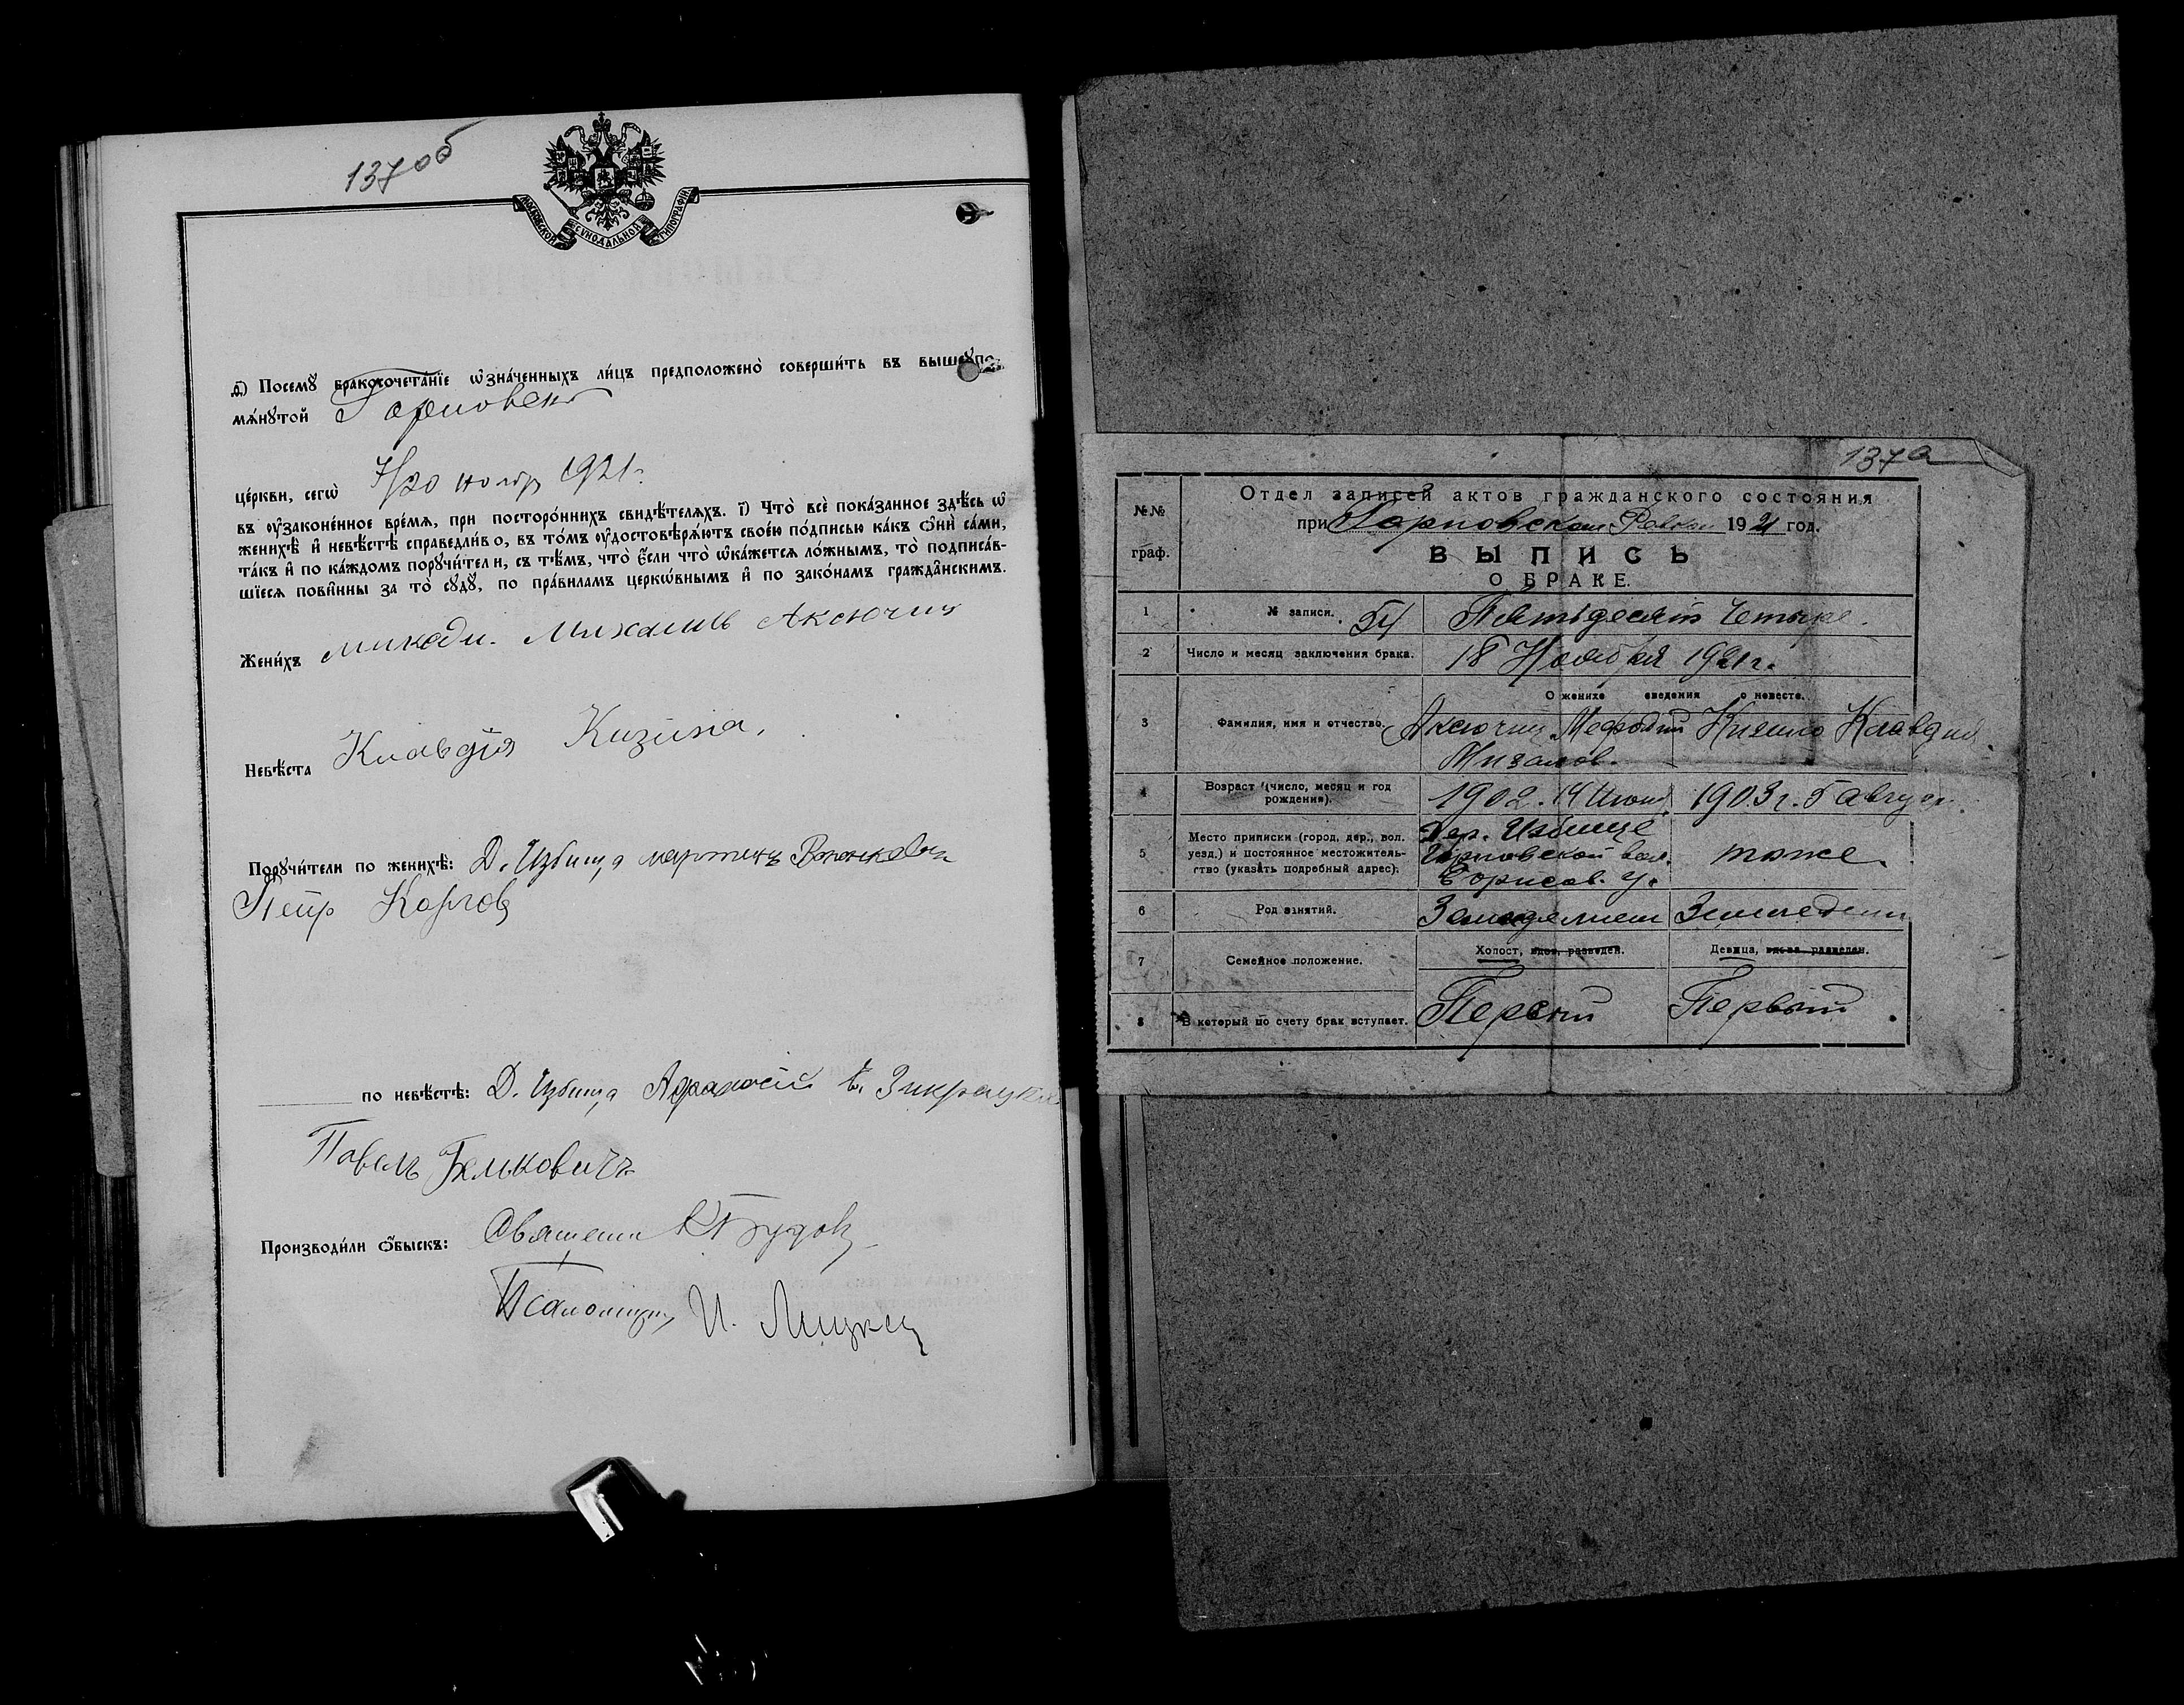 137об
МОСКОВСКОЙ СѴНОДАЛЬНОЙ ТИПОГРАФІИ.
д҃) Посемꙋ̀ бракосочета́нїе ѡ҆зна́ченныхъ ли́цъ предположено̀ соверши́ть въ вышеꙋпо-
мѧ́нꙋтой
це́ркви, сегѡ̀ 7/20 ноябр 1921 г.
въ ᲂу҆законе́нное вре́мѧ, при посторо́ннихъ свидѣ́телѧхъ. і҃) Что̀ всѐ пока́занное здѣ́сь ѡ҆
женихѣ̀ и҆ невѣ́стѣ справедли́во, въ то́мъ ᲂу҆достовѣрѧ́ютъ свое́ю по́дписью ка́къ ѻ҆нѝ са́ми,
та́къ и҆ по ка́ждомъ порꙋчи́тели, съ тѣ́мъ, что̀ є҆́сли что̀ ѡ҆ка́жетсѧ ло́жнымъ, то̀ подписа́в-
шїесѧ пови́нны за то̀ сꙋдꙋ̀, по пра́виламъ церко́внымъ и҆ по зако́намъ гражда́нскимъ.
Жени́хъ Михаиловъ Аксючиц
Невѣ́ста Клавдія Кизина,
Порꙋчи́тели по женихѣ̀: Д. Избища мартинъ
Петр Карлов
по невѣ́стѣ: Д. Избища Афанасій
Павелъ
Производи́ли ѻ҆́быскъ: Священ
Псаломщик И. Мицкец
137а
№№ граф.
Отдел записей актов гражданского состояния
при 1921 год.
ВЫПИСЬ
О БРАКЕ.
1 № записи. 54 Пятьдесят Четыре.
2 Число и месяц заключения брака. 18 Ноября 1921 г.
О женихе сведения о невесте.
3 Фамилия, имя и отчество. Аксючиц Мефодий Клавдия
4 Возраст (число, месяц и год
рождения). 1902. 14 Июня 1903 г. 5 Август
5 Место приписки (город, дер., вол.
уезд.) и постоянное местожитель-
ство (указать подробный адрес). Дер. Избище
вол.
Борисов. у. тоже.
6 Род занятий. Земледелием Земледелии
7 Семейное положение. Холост, вдов, разведен. Девица, вдова, разведен.
8 В который по счету брак вступает. Первый Первый